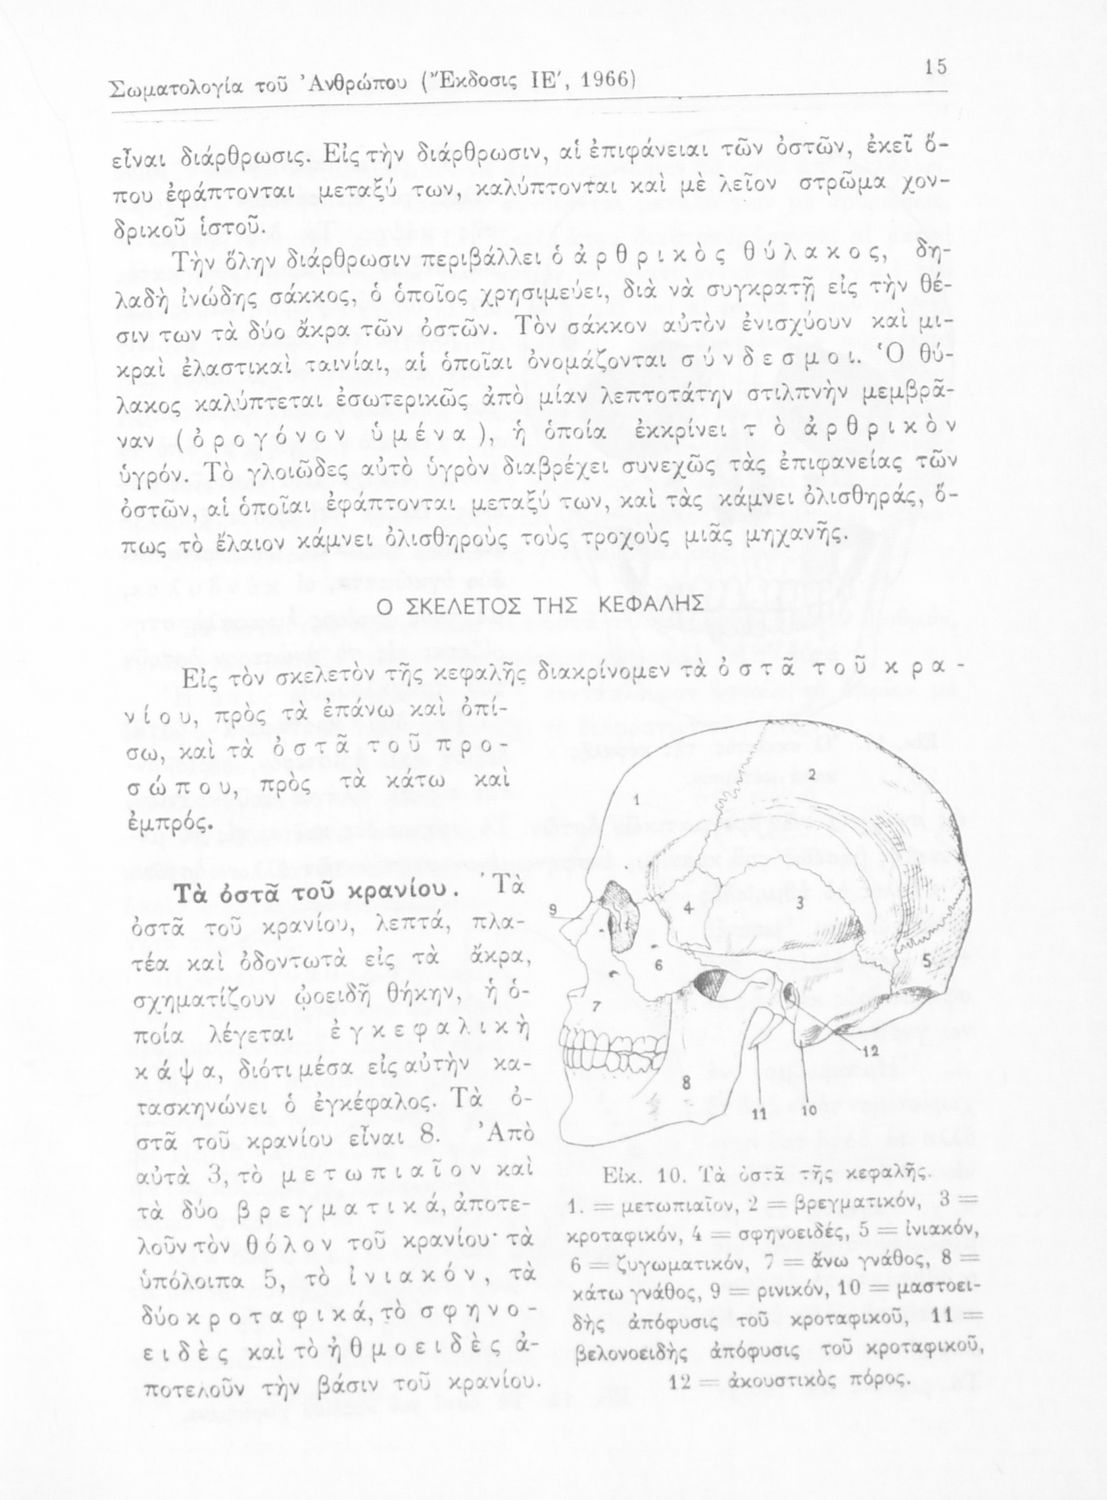 Σωματολογία τοῦ Ἀνθρώπου (Ἔκδοσις ΙΕ', 1966)
15
εἶναι διάρθρωσις. Εἰς τὴν διάρθρωσιν, αἱ ἐπιφάνειαι τῶν ὀστῶν, ἐκεῖ ὅ-
που ἐφάπτονται μεταξύ των, καλύπτονται καὶ μὲ λεῖον στρῶμα χον-
δρικοῦ ἱστοῦ.
Τὴν ὅλην διάρθρωσιν περιβάλλει ὁ ἀρθρικὸς θύλακος, δη-
λαδὴ ἰνώδης σάκκος, ὁ ὁποῖος χρησιμεύει, διὰ νὰ συγκρατῇ εἰς τὴν θέ-
σιν των τὰ δύο ἄκρα τῶν ὀστῶν. Τὸν σάκκον αὐτὸν ἐνισχύουν καὶ μι-
κραὶ ἐλαστικαὶ ταινίαι, αἱ ὁποῖαι ὀνομάζονται σύνδεσμοι. Ὁ θύ-
λακος καλύπτεται ἐσωτερικῶς ἀπὸ μίαν λεπτοτάτην στιλπνὴν μεμβρᾶ-
ναν (ὀρογόνον ὑμένα), ἡ ὁποία ἐκκρίνει τὸ ἀρθρικὸν
ὑγρόν. Τὸ γλοιῶδες αὐτὸ ὑγρὸν διαβρέχει συνεχῶς τὰς ἐπιφανείας τῶν
ὀστῶν, αἱ ὁποῖαι ἐφάπτονται μεταξύ των, καὶ τὰς κάμνει ὀλισθηράς, ὅ-
πως τὸ ἔλαιον κάμνει ὀλισθηροὺς τοὺς τροχοὺς μιᾶς μηχανῆς.
Ο ΣΚΕΛΕΤΟΣ ΤΗΣ ΚΕΦΑΛΗΣ
Εἰς τὸν σκελετὸν τῆς κεφαλῆς διακρίνομεν τὰ ὀστᾶ τοῦ κρα-
νίου, πρὸς τὰ ἐπάνω καὶ ὀπί-
σω, καὶ τὰ ὀστᾶ τοῦ προ-
σώπου, πρὸς τὰ κάτω καὶ
ἐμπρός.
Τὰ ὀστᾶ τοῦ κρανίου. Τὰ
ὀστᾶ τοῦ κρανίου, λεπτά, πλα-
τέα καὶ ὀδοντωτὰ εἰς τὰ ἄκρα,
σχηματίζουν ᾠοειδῆ θήκην, ἡ ὁ-
ποία λέγεται ἐγκεφαλικὴ
κάψα, διότι μέσα εἰς αὐτὴν κα-
τασκηνώνει ὁ ἐγκέφαλος. Τὰ ὀ-
στᾶ τοῦ κρανίου εἶναι 8. Ἀπὸ
αὐτὰ 3, τὸ μετωπιαῖον καὶ
τὰ δύο βρεγματικά, ἀποτε-
λοῦν τὸν θόλον τοῦ κρανίου· τὰ
ὑπόλοιπα 5, τὸ ἰνιακόν, τὰ
δύο κροταφικά, τὸ σφηνο-
ειδὲς καὶ τὸ ἠθμοειδὲς ἀ-
ποτελοῦν τὴν βάσιν τοῦ κρανίου.
1
2
3
4
5
6
7
8
9
10
11
12
Εἰκ. 10. Τὰ ὀστᾶ τῆς κεφαλῆς.
1. = μετωπιαῖον, 2 = βρεγματικόν, 3 =
κροταφικόν, 4 = σφηνοειδές, 5 = ἰνιακόν,
6 = ζυγωματικόν, 7 = ἄνω γνάθος, 8 =
κάτω γνάθος, 9 = ρινικόν, 10 = μαστοει-
δὴς ἀπόφυσις τοῦ κροταφικοῦ, 11 =
βελονοειδὴς ἀπόφυσις τοῦ κροταφικοῦ,
12 = ἀκουστικὸς πόρος.